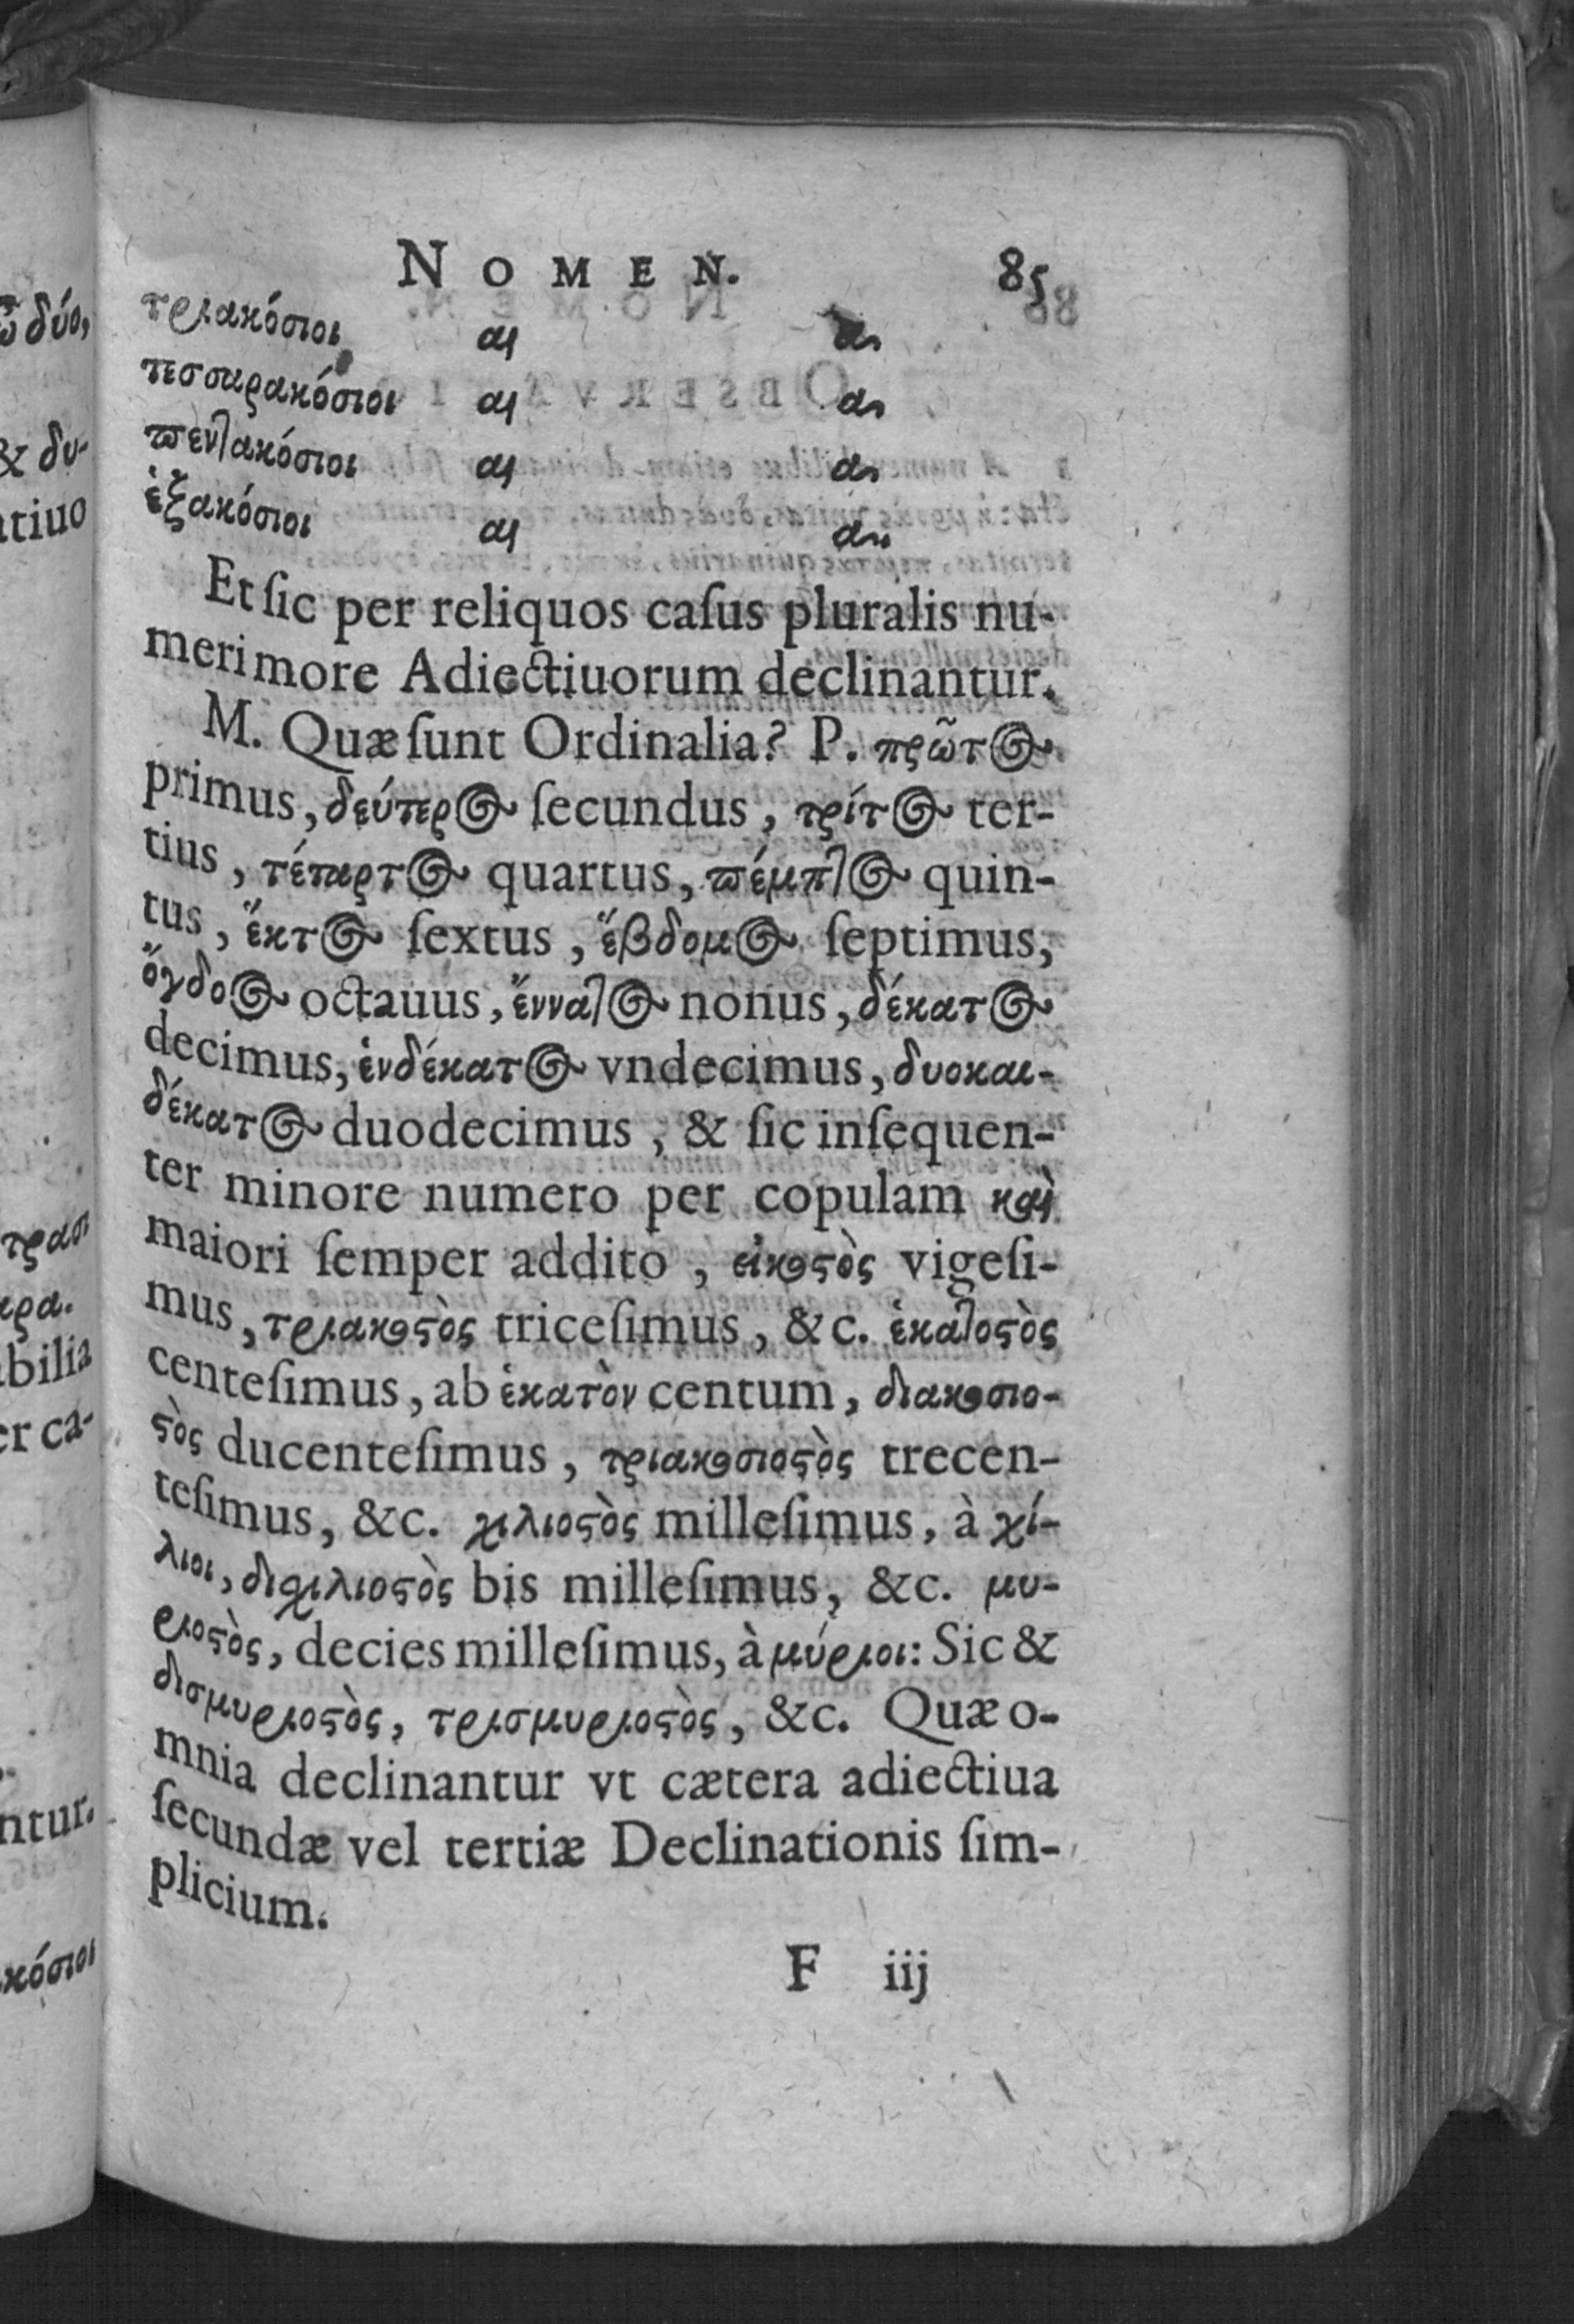 NOMEN. 85
τριακόσιοι αι α
τεσσαρακόσιοι αι α
πεντακόσιοι αι α
ἑξακόσιοι αι α
Et ſic per reliquos caſus pluralis nu-
meri more Adiectiuorum declinantur.
M. Quæ ſunt Ordinalia? P. πρῶτος
primus, δεύτερος ſecundus, τρίτος ter-
tius, τέταρτος quartus, πέμπτος quin-
tus, ἕκτος ſextus, ἕβδομος ſeptimus,
ὄγδοος octauus, ἔννατος nonus, δέκατος
decimus, ἑνδέκατος vndecimus, δυοκαι-
δέκατος duodecimus, & ſic inſequen-
ter minore numero per copulam καὶ
maiori ſemper addito, εἰκοϛὸς vigeſi-
mus, τριακοϛὸς triceſimus, &c. ἑκατοϛὸς
centeſimus, ab ἑκατὸν centum, διακοσιο-
ϛὸς ducenteſimus, τριακοσιοϛὸς trecen-
teſimus, &c. χιλιοϛὸς milleſimus, à χί-
λιοι, διχιλιοϛὸς bis milleſimus, &c. μυ-
ριοϛὸς, decies milleſimus, à μύριοι: Sic &
δισμυριοϛὸς, τρισμυριοϛὸς, &c. Quæ o-
mnia declinantur vt cætera adiectiua
ſecundæ vel tertiæ Declinationis ſim-
plicium.
F iij